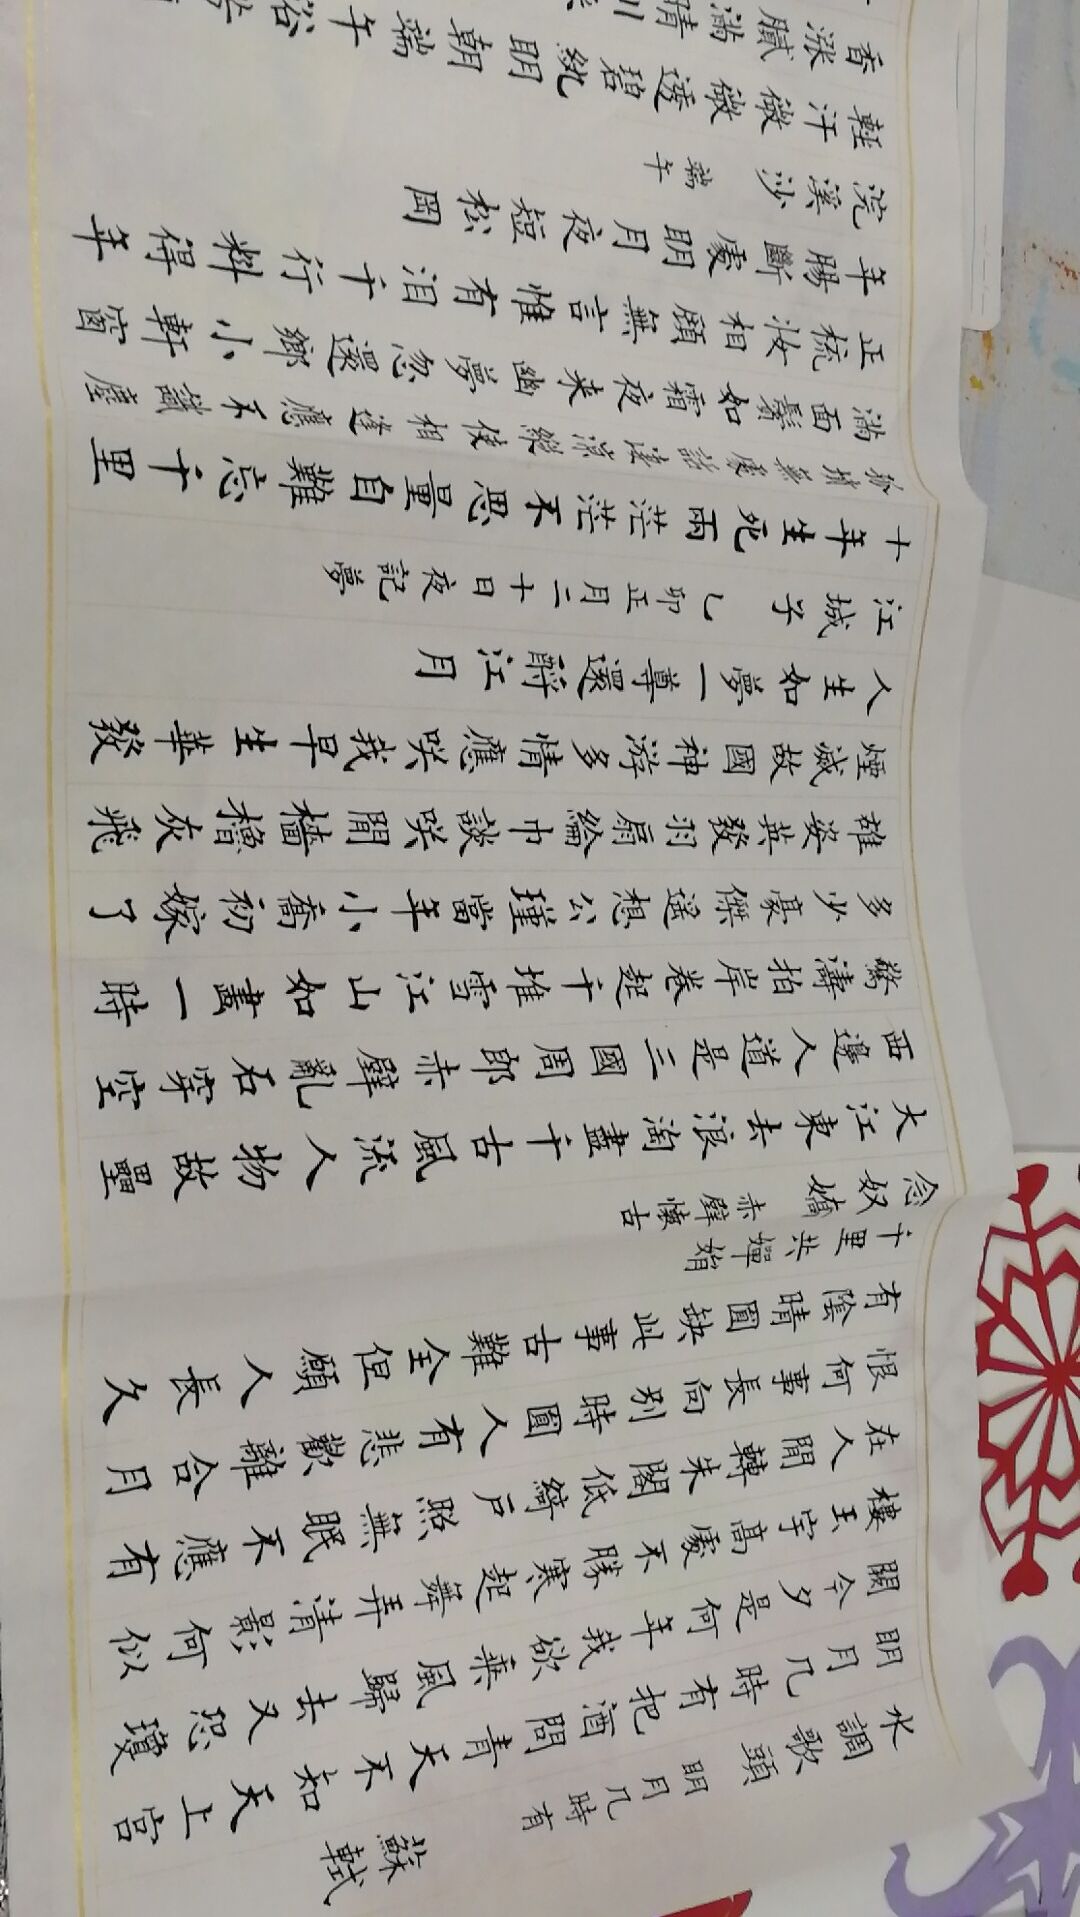 水調歌頭 明月几時有 蘇軾
明月几時有把酒問青天不知天上宮
闕今夕是何年我欲乘風歸去又恐瓊
樓玉宇高處不勝寒起舞弄清影何似
在人間轉朱閣低綺戶照無眠不應有
恨何事長向别時圓人有悲歡離合月
有陰晴圓缺此事古難全但願人長久
千里共嬋娟
念奴嬌 赤壁懷古
大江東去浪淘盡千古風流人物故壘
西邊人道是三國周郎赤壁亂石穿空
驚濤拍岸卷起千堆雪江山如畫一時
多少豪傑遥想公瑾當年小喬初嫁了
雄姿英發羽扇綸巾談咲間檣櫓灰飛
煙滅故國神游多情應咲我早生華發
人生如夢一尊還酹江月
江城子 乙卯正月二十日夜記夢
十年生死兩茫茫不思量自難忘千里
孤墳無處話淒涼縱使相逢應不識塵
滿面鬢如霜夜来幽夢忽還鄉小軒窗
正梳妝相顧無言惟有泪千行料得年
年腸斷處明月夜短松岡
浣溪沙 端午
輕汗微微透碧紈明朝端午浴
香漲膩滿晴川